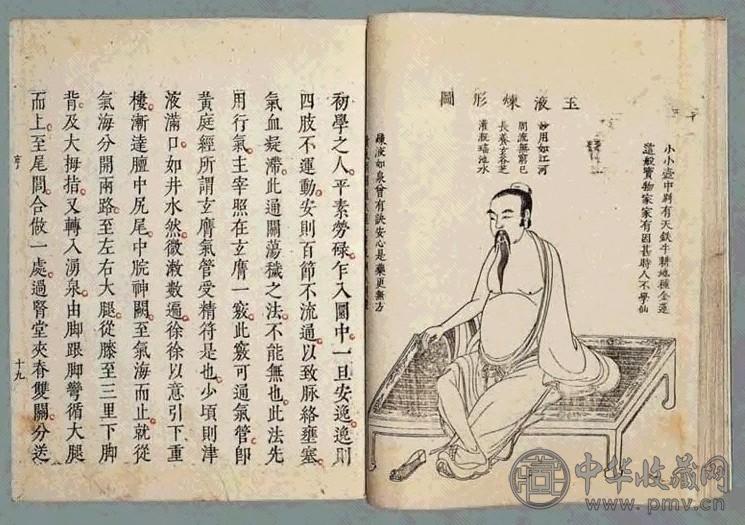 玉液煉形圖
小小壺中別有天鉄牛耕地種金蓮
這般寶物家家有因甚時人不學仙
妙用如江河
周流無窮已
長養玄谷芝
灌溉瑤池水
鍊液如泉曾有訣安心是藥更無方
初學之人平素勞碌乍入圜中一旦安逸逸則
四肢不運動安則百節不流通以致脉絡壅塞
氣血凝滯此通關蕩穢之法不能無也此法先
用行氣主宰照在玄膺一竅此竅可通氣管卽
黃庭經所謂玄膺氣管受精符是也少頃則津
液滿口如井水然微漱數遍徐徐以意引下重
樓漸達膻中尻尾中脘神闕至氣海而止就從
氣海分開兩路至左右大腿從膝至三里下脚
背及大拇指又轉入湧泉由脚跟脚彎循大腿
而上至尾閭合做一處過腎堂夾脊雙關分送
十九
中华收藏网
www.pmv.cn